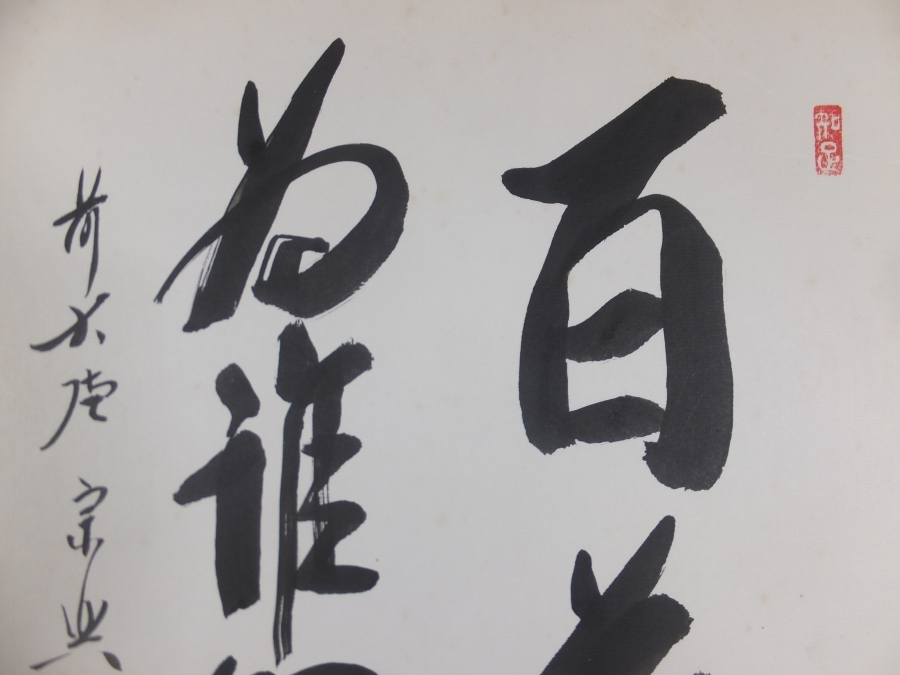 知足
百
為誰
前大徳 宗興